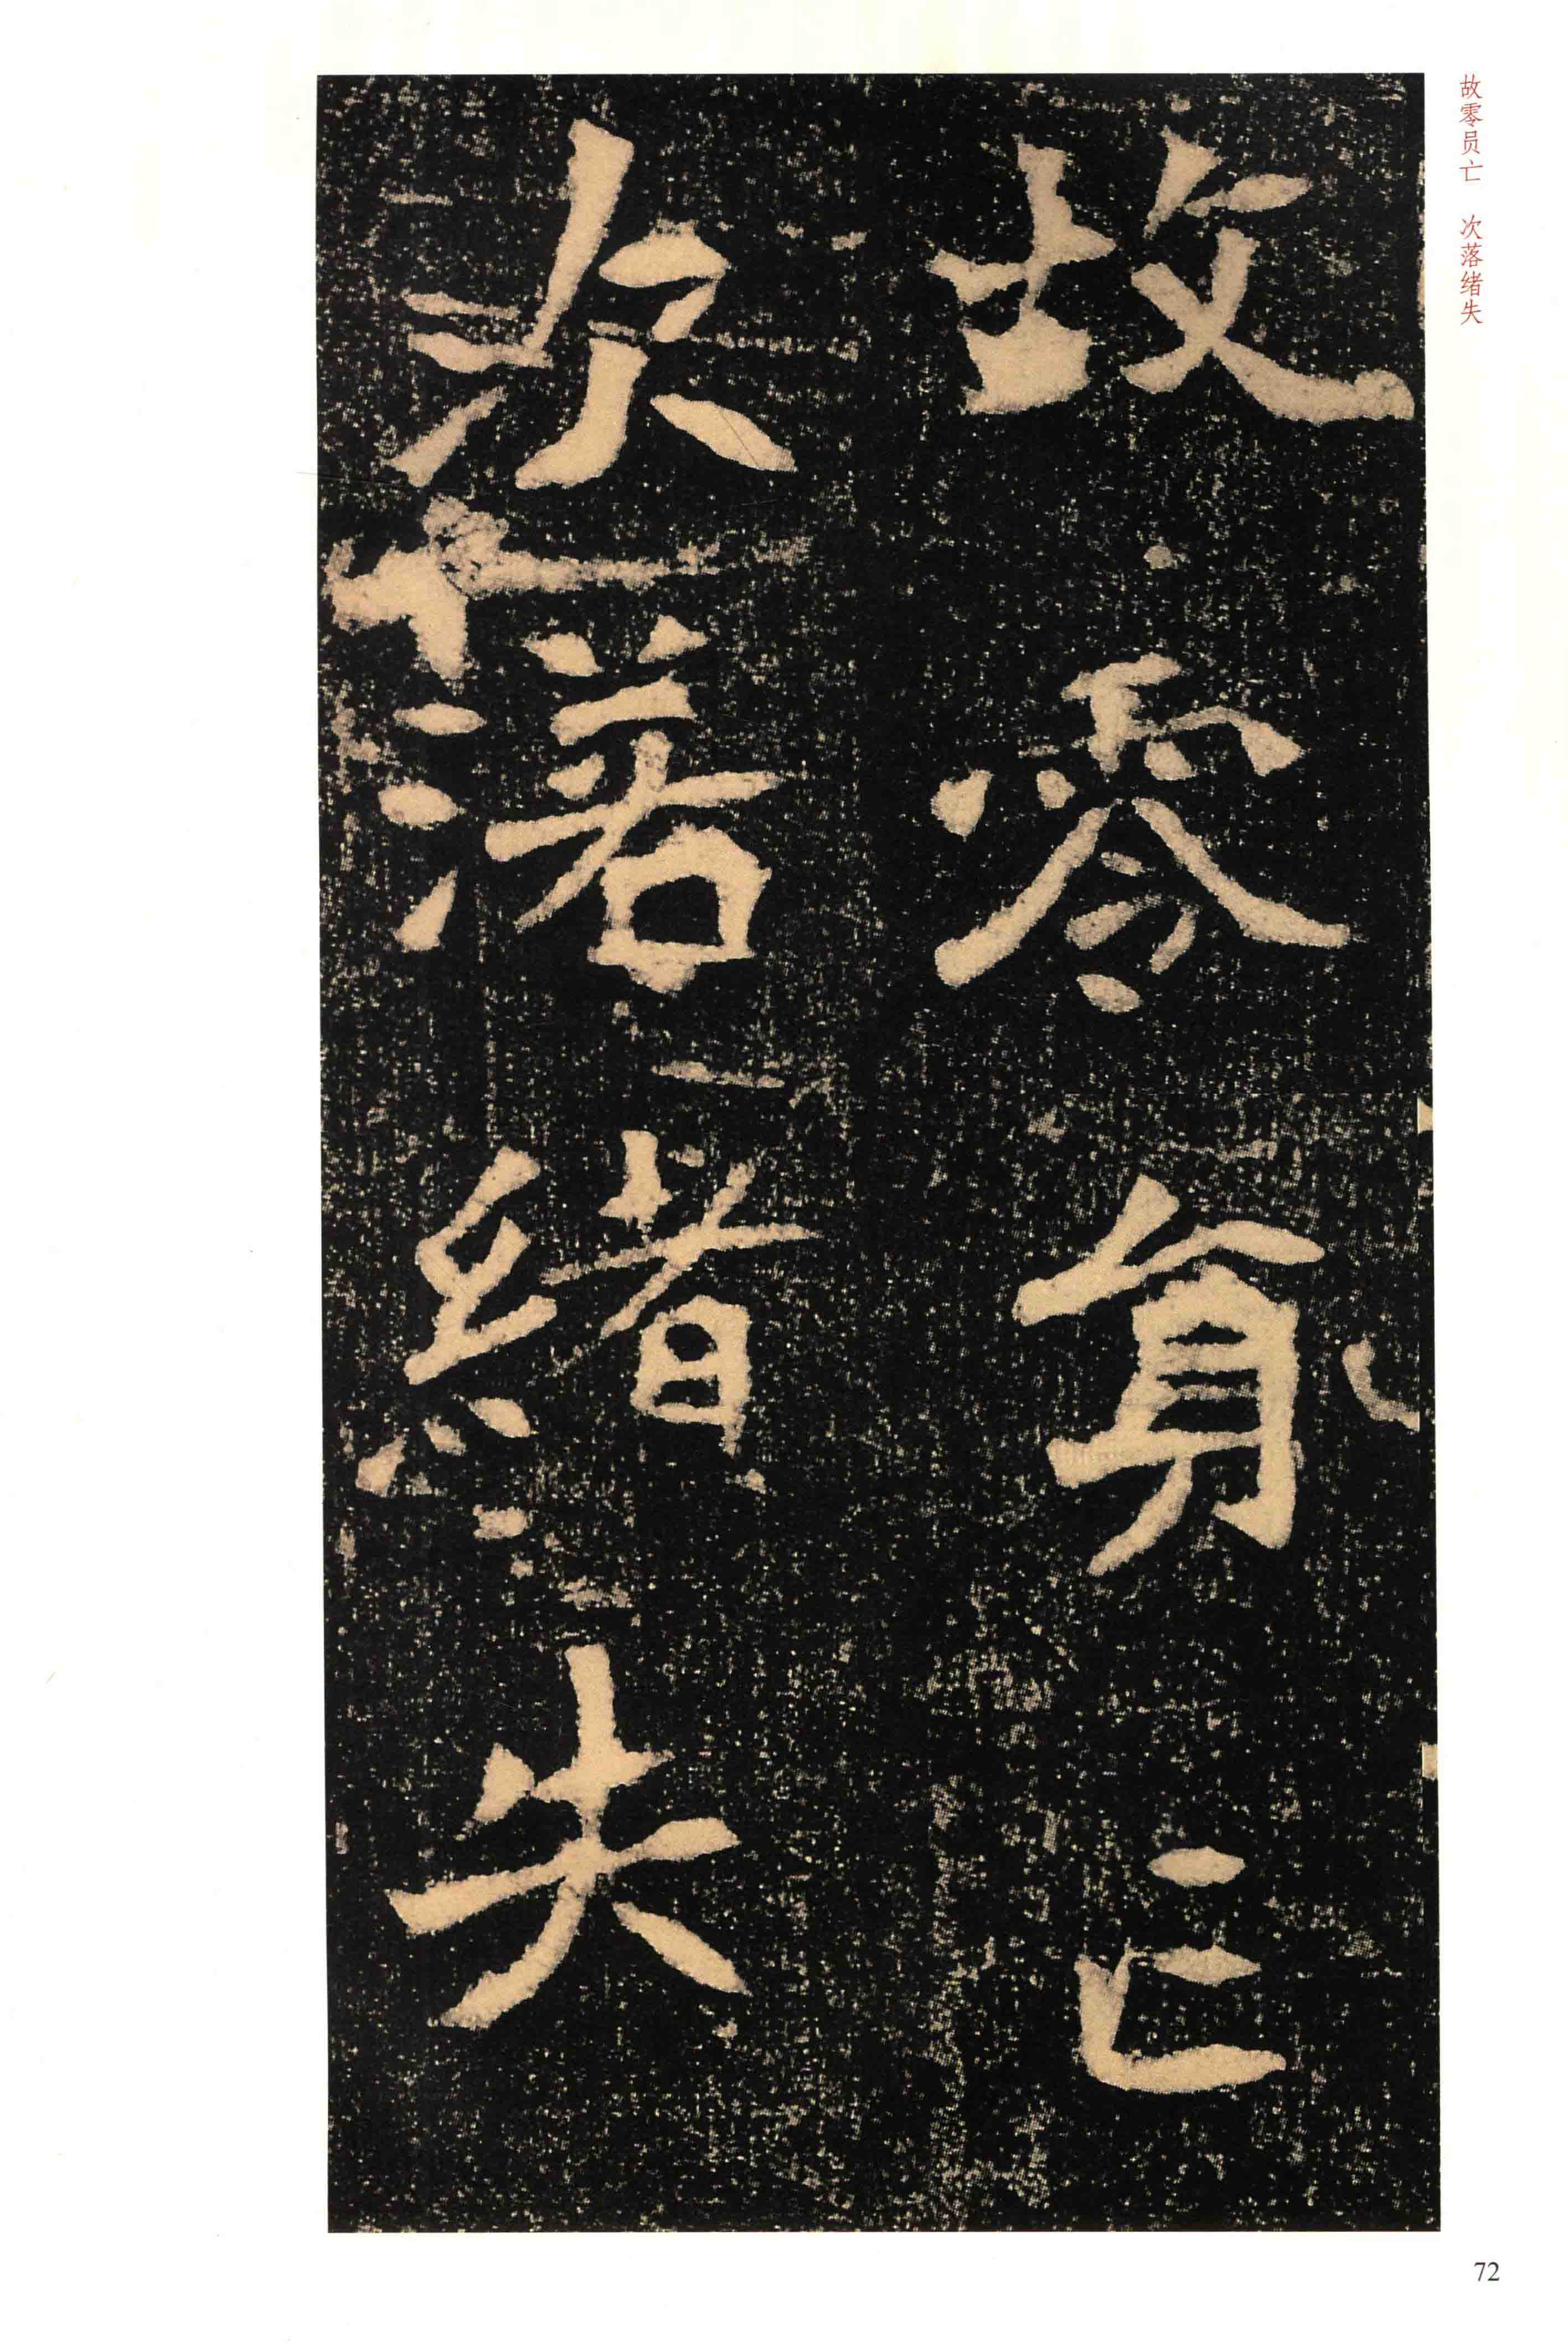 故零員亡
次落緒失
故零员亡 次落绪失
72